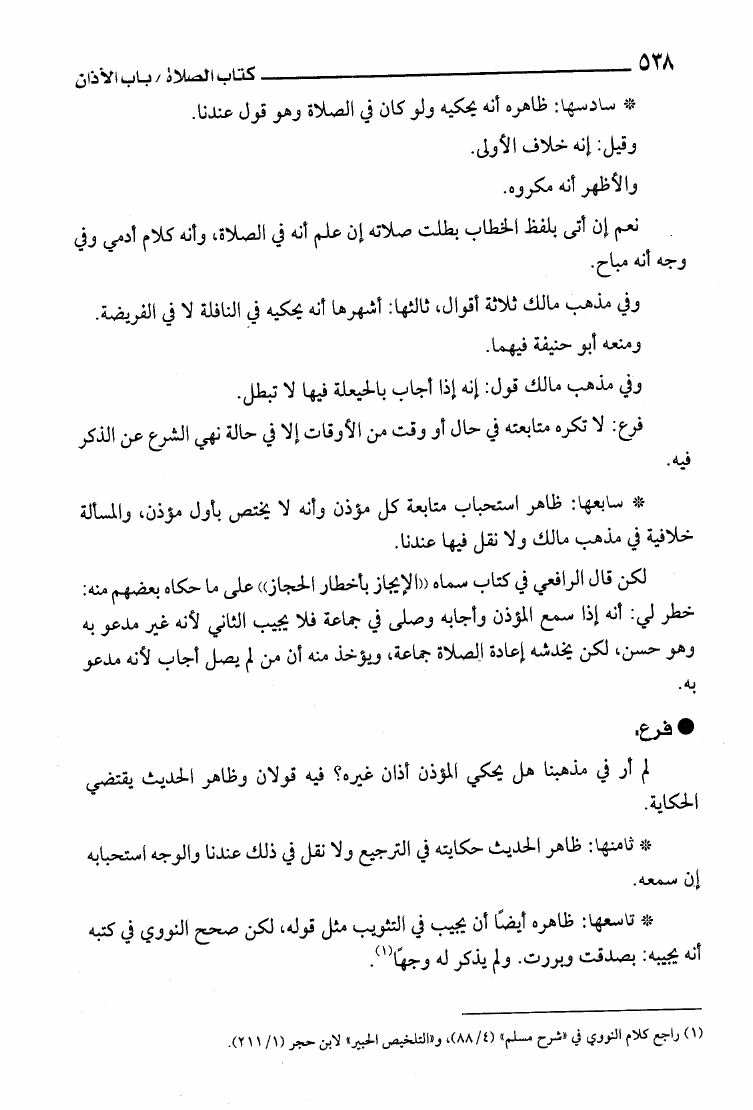 ٥٣٨ كتاب الصلاة / باب الأذان
* سادسها: ظاهره أنه يحكيه ولو كان في الصلاة وهو قول عندنا.
وقيل: إنه خلاف الأولى.
والأظهر أنه مكروه.
نعم إن أتى بلفظ الخطاب بطلت صلاته إن علم أنه في الصلاة، وأنه كلام أدمي وفي
وجه أنه مباح.
وفي مذهب مالك ثلاثة أقوال، ثالثها: أشهرها أنه يحكيه في النافلة لا في الفريضة.
ومنعه أبو حنيفة فيهما.
وفي مذهب مالك قول: إنه إذا أجاب بالحيعلة فيها لا تبطل.
فرع: لا تكره متابعته في حال أو وقت من الأوقات إلا في حالة نهي الشرع عن الذكر
فيه.
* سابعها: ظاهر استحباب متابعة كل مؤذن وأنه لا يختص بأول مؤذن، والمسألة
خلافية في مذهب مالك ولا نقل فيها عندنا.
لكن قال الرافعي في كتاب سماه ((الإيجاز بأخطار الحجاز)) على ما حكاه بعضهم منه:
خطر لي: أنه إذا سمع المؤذن وأجابه وصلى في جماعة فلا يجيب الثاني لأنه غير مدعو به
وهو حسن، لكن يخدشه إعادة الصلاة جماعة، ويؤخذ منه أن من لم يصل أجاب لأنه مدعو
به.
● فرع:
لم أر في مذهبنا هل يحكي المؤذن أذان غيره؟ فيه قولان وظاهر الحديث يقتضي
الحكاية.
* ثامنها: ظاهر الحديث حكايته في الترجيع ولا نقل في ذلك عندنا والوجه استحبابه
إن سمعه.
* تاسعها: ظاهره أيضًا أن يجيب في التثويب مثل قوله، لكن صحح النووي في كتبه
أنه يجيبه: بصدقت وبررت. ولم يذكر له وجهًا(١).
(١) راجع كلام النووي في «شرح مسلم» (٤/ ٨٨)، و«التلخيص الحبير» لابن حجر (١/ ٢١١).